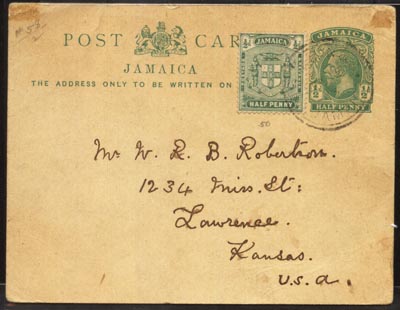 POST CAR
JAMAICA
THE ADDRESS ONLY TO BE WRITTEN ON
JAMAICA
½ ½
HALF PENNY
JAMAICA
½ ½
HALF PENNY
.50
Mr. W. R. B. Robertson.
1234 Miss. St:
Lawrence.
Kansas.
U.S.A.